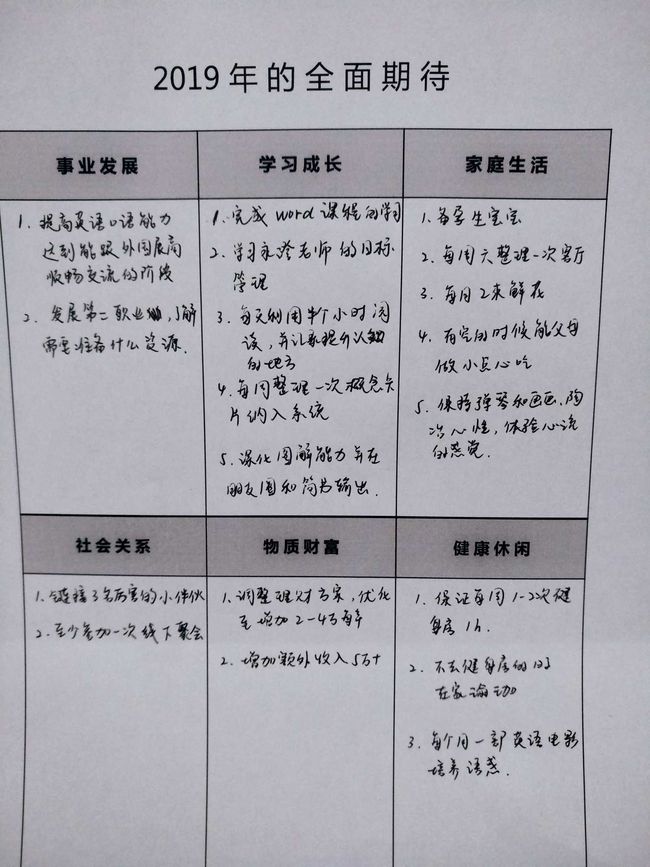 2019年的全面期待
事业发展
1. 提高英语口语能力
达到能跟外国展商
顺畅交流的阶段
2. 发展第二职业,了解
需要准备什么资源.
学习成长
1. 完成word课程的学习
2. 学习永澄老师的目标
管理
3. 每天利用半个小时阅
读,并记录提升认知
的地方
4. 每周整理一次概念卡
片纳入系统
5. 深化图解能力并在
朋友圈和简书输出.
家庭生活
1. 备孕生宝宝
2. 每周六整理一次客厅
3. 每月2束鲜花
4. 有空的时候能父母
做小点心吃
5. 保持弹琴和画画,陶
冶心性,体验心流
的感觉.
社会关系
1. 链接3名厉害的小伙伙
2. 至少参加一次线下聚会
物质财富
1. 调整理财方案,优化
至增加2-4万每年
2. 增加额外收入5万+
健康休闲
1. 保证每周1-2次健
身房1h.
2. 不去健身房的时
在家运动
3. 每个月一部英语电影
培养语感.